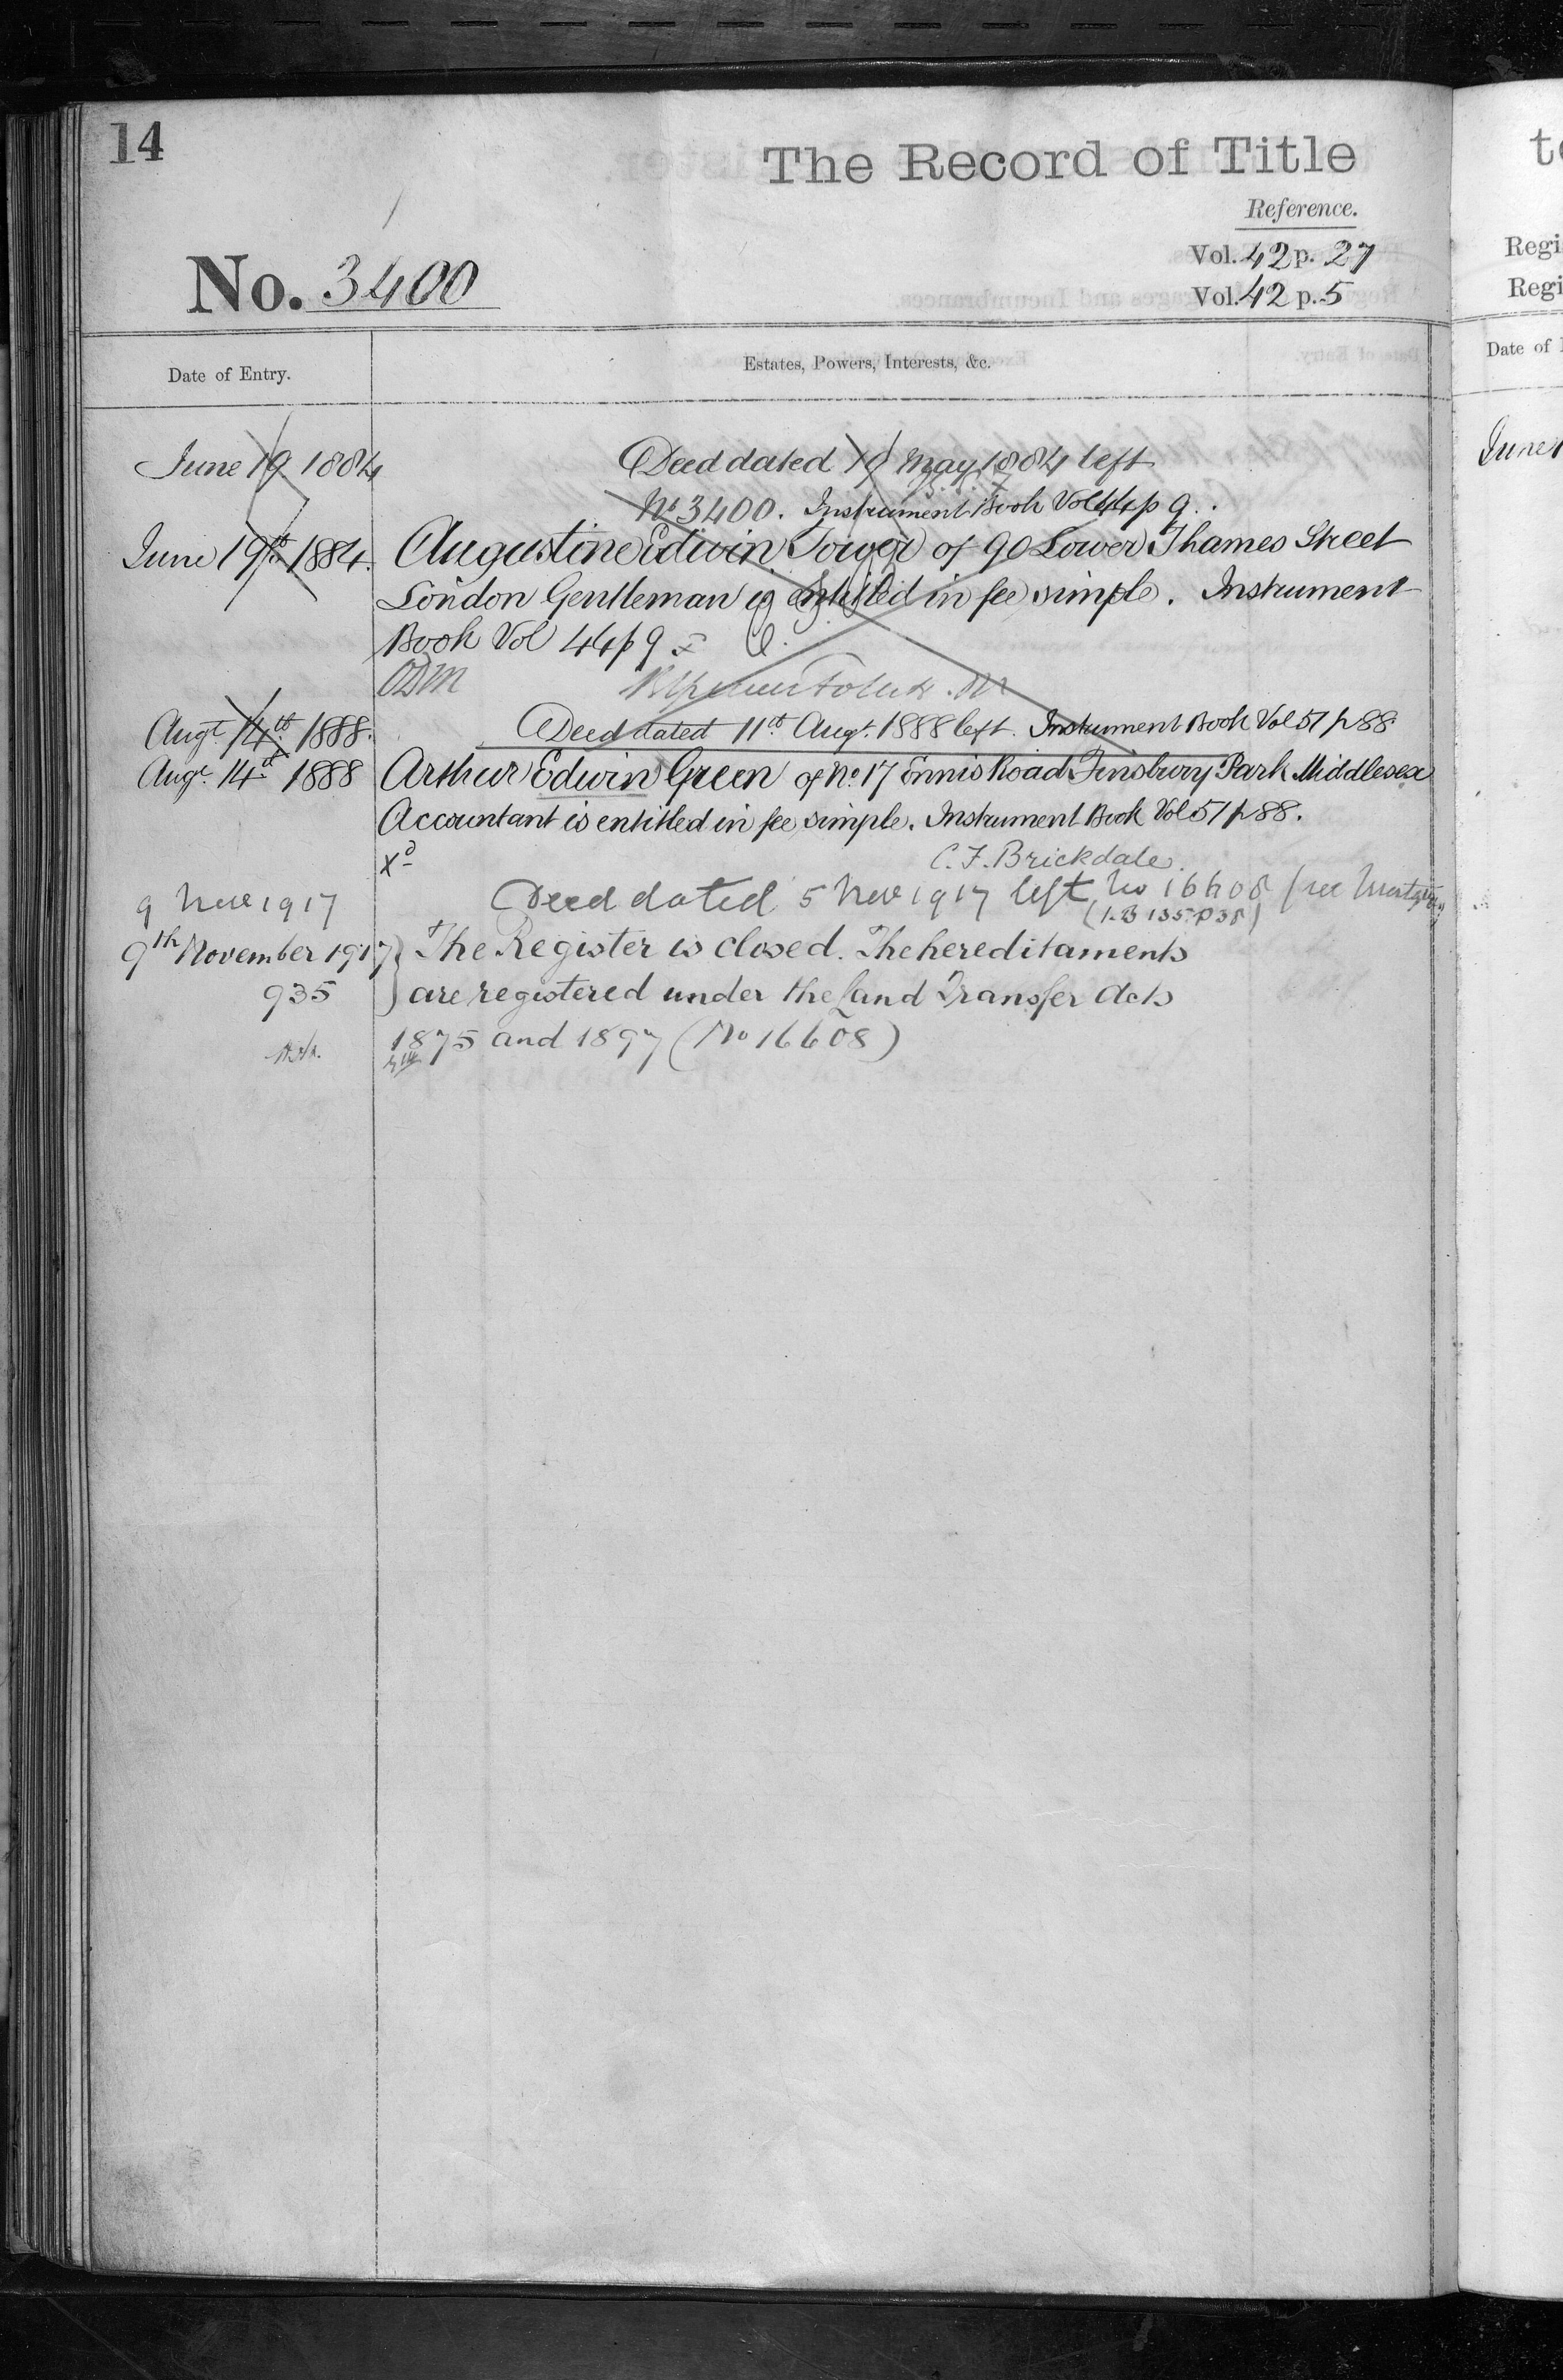 14
The Record of Title
Reference.
Vol. 42 p. 27
No. 3400
Vol. 42 p. 5
Date of Entry.
Estates, Powers, Interests, &c.
June 19 1884
Deed dated 19 May 1884 left
No 3400. Instrument Book Vol 44 p 9.
June 19th 1884.
Augustine Edwin Tower of 90 Lower Thames Street
London Gentleman is entitled in fee simple. Instrument
Book Vol 44 p 9
ODM
Augt. 14th 1888.
Deed dated 11th Augt. 1888 left. Instrument Book Vol 51 p 88
Augt. 14th 1888
Arthur Edwin Green of No. 17 Ennis Road Finsbury Park Middlesex
Accountant is entitled in fee simple. Instrument Book Vol 51 p 88.
Xd
C. F. Brickdale.
9 Nov 1917
Deed dated 5 Nov 1917 left No 16608 (see
(I.B 135. p 38)
9th November 1917
The Register is closed. The hereditaments
935
are registered under the Land Transfer Acts
1875 and 1897 (No 16608)
to
Regi
Regi
Date of
June 1